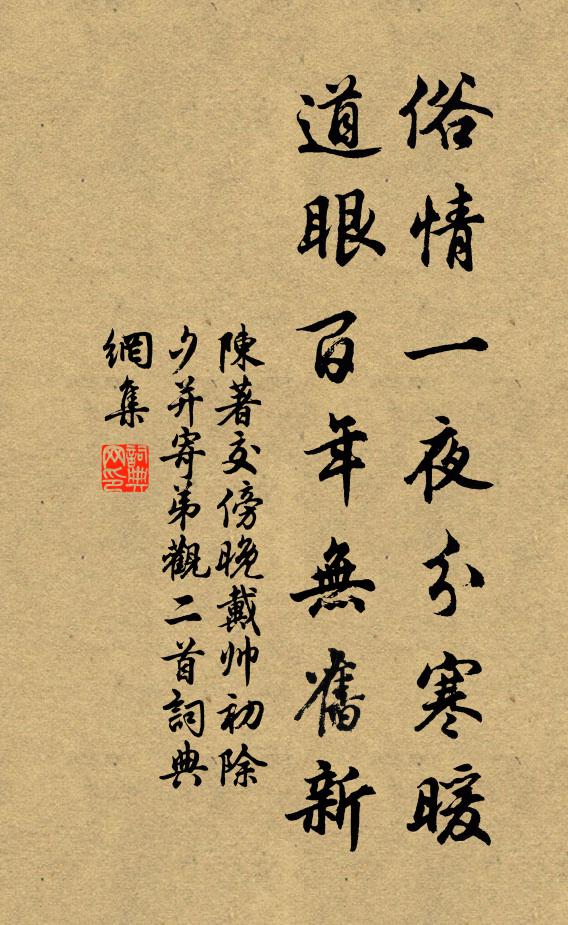 俗情一夜分寒暖
道眼百年無舊新
陳著交傍晚戴帅初除
夕并寄弟觀二首詞典
網集
詞典網印